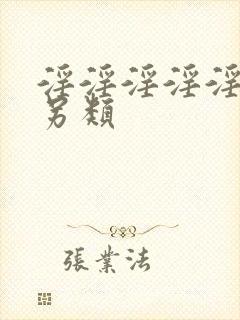 淫淫淫淫淫
另類
張業法